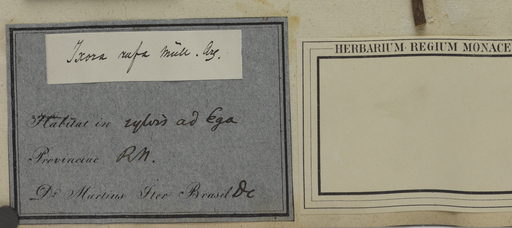 Ixora rufa Müll. Arg.
Habitat in sylvis ad Ega
Provinciae RN.
Dr Martius Iter Brasil Dc
HERBARIUM REGIUM MONACE